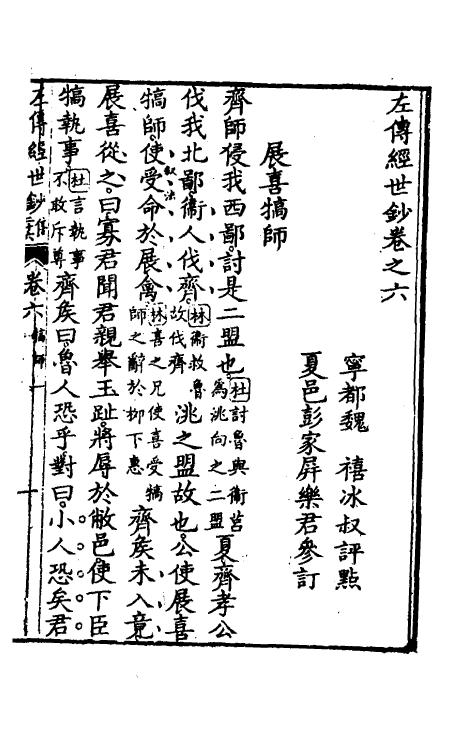 左傳經世鈔卷之六
寧都魏　禧冰叔評點
夏邑彭家屏樂君參訂
展喜犒師
齊師侵我西鄙討是二盟也杜討魯與衞莒為洮向之二盟夏齊孝公
伐我北鄙衞人伐齊林衞救魯故伐齊洮之盟故也公使展喜
犒師敘法使受命於展禽林喜之兄使喜受犒師之辭於柳下惠齊侯未入竟
展喜從之曰寡君聞君親舉玉趾將辱於敝邑使下臣
犒執事杜言執事不敢斥尊齊侯曰魯人恐乎對曰小人恐矣君
左傳經世鈔 卷六 犒師 一